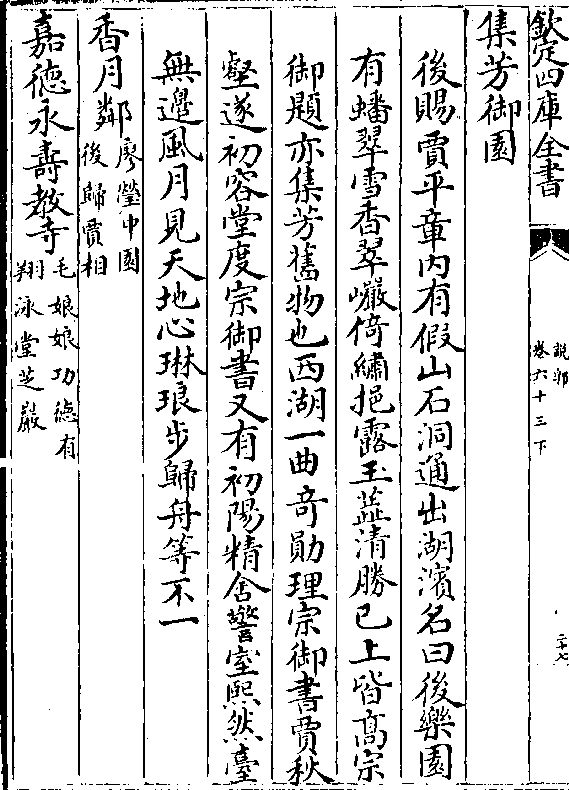 欽定四庫全書
說郛
卷六十三下
二十七
集芳御園
後賜賈平章內有假山石洞通出湖濱名曰後樂園
有蟠翠雪香翠巖倚繡挹露玉蘂清勝已上皆髙宗
御題亦集芳舊物也西湖一曲奇勛理宗御書賈秋
壑遂初容堂度宗御書又有初陽精舍警室熙然臺
無邊風月見天地心琳琅步歸舟等不一
香月鄰廖瑩中園
後歸賈相
嘉德永壽教寺毛娘娘功德有
翔泳堂芝巖